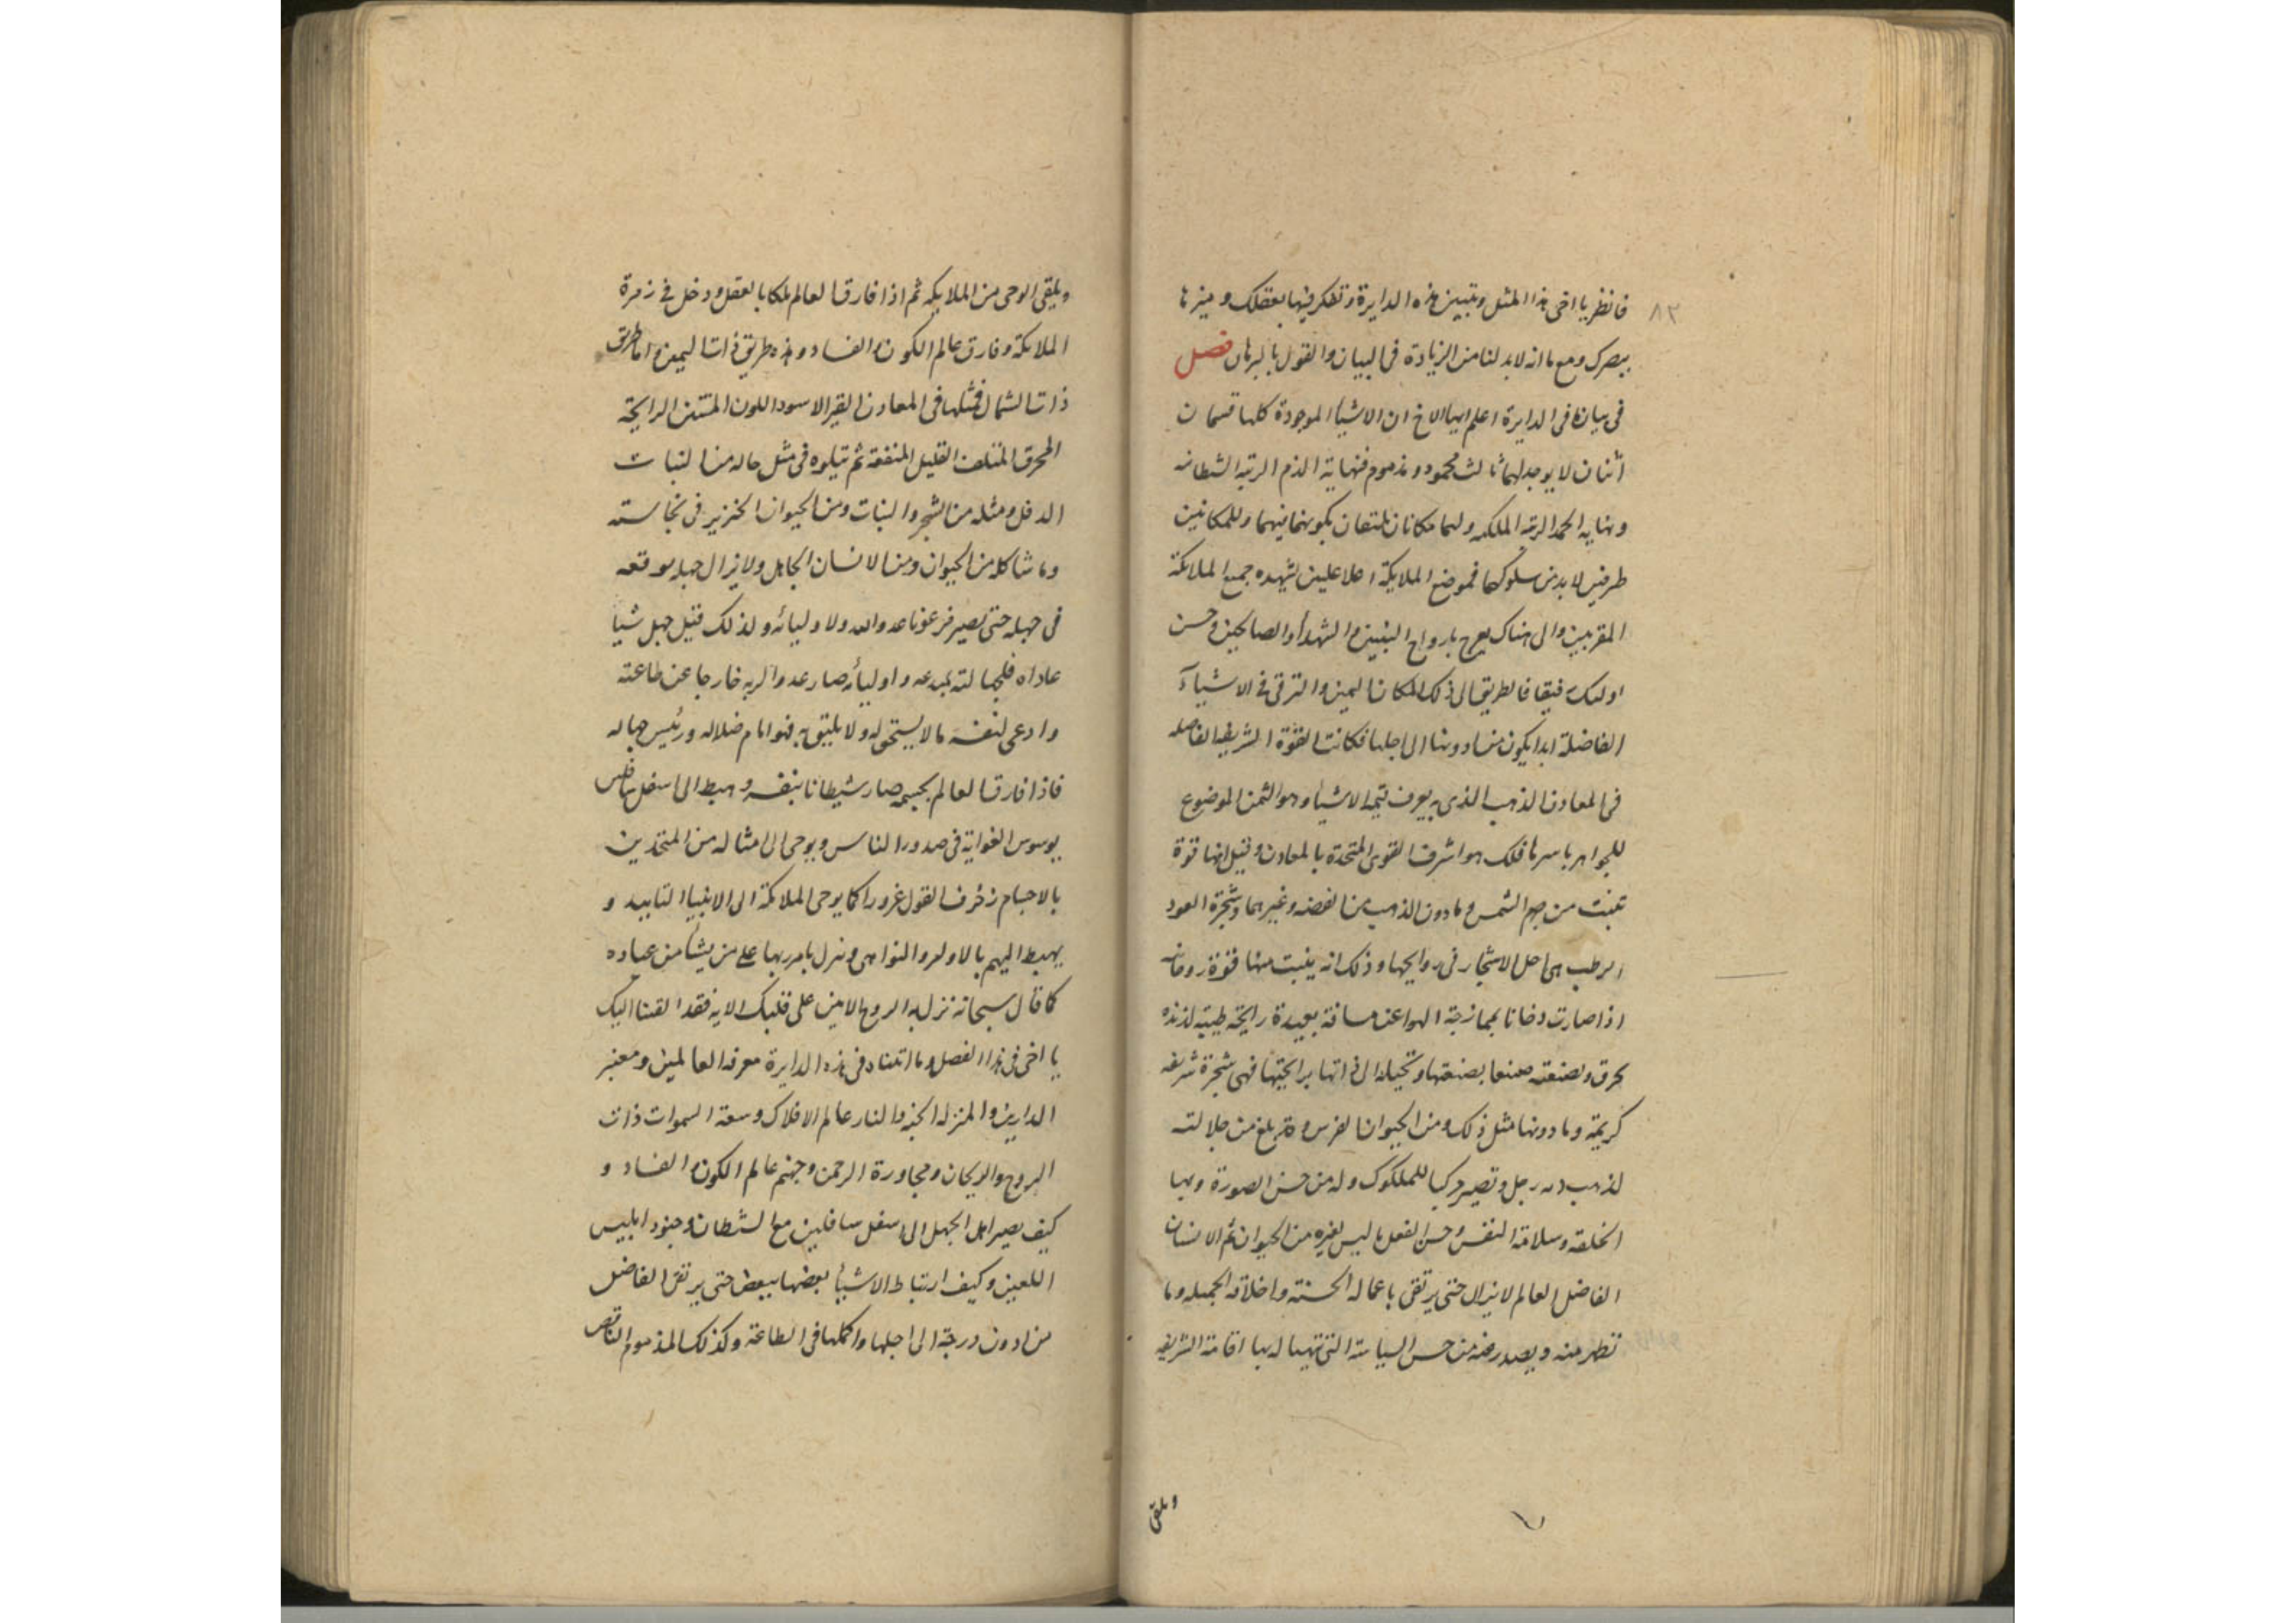 ٨٣
فانظر يا اخى هذا المثل وتبين هذه الدايرة وتفكر فيها بعقلك وميزها
ببصرك ومع ما انه لابد لنا من الزيادة فى البيان والقول بالبرهان فصل
فى بيان ما فى الدايرة اعلم ايها الاخ ان الاشيا الموجودة كلها قسمان
اثنان لا يوجد لهما ثالث محمود ومذموم فنهاية الذم الرتبه الشيطانيه
ونهايه الحمد الرتبه الملكيه ولهما مكانان يكونهما فيهما وللمكانين
طرفين لا بد من سلوكهما فموضع الملايكة اعلا عليين يشهده جميع الملايكة
المقربين والى هناك يعرج بارواح النبيين والشهدأ والصالحين وحسن
اولئك رفيقا فالطريق الى ذلك المكان اليمين والترقى فى الاشيآء
الفاضلة ابدا يكون من ادونها الى اجلها فكانت القوة الشريفه الفاضله
فى المعادن الذهب الذى به يعرف قيمه الاشيا وهو الثمن الموضوع
للجواهر باسرها فلك هو اشرف القوى المتحدة بالمعادن وقيل انها قوة
تنبت من جرم الشمس وما دون الذهب من الفضه وغيرهما وشجرة العود
الرطب هى اجل الاشجار فى روايحها وذلك انه ينبت منها قوة روحانيه
اذا صارت دخانا بممازجة الهوا عند مسافة بعيدة رايحة طيبة لذيذه
وتحيله الى ذاتها برايحتها فهى شجرة شريفه
كريمة وما دونها مثل ذلك ومن الحيوان الفرس وقد بلغ من جلالته
وتصير مركبا للملوك وله من حسن الصورة وبها
الخلقه وسلامة النفس وحسن الفعل ما ليس لغيره من الحيوان ثم الانسان
الفاضل العالم لا يزال حتى يرتقى باعماله الحسنه واخلاقه الجميله وما
تظهر منه ويصدر عنه من حسن السياسة التى تهيا له بها اقامة الشريعه
ويلقى
ويلقى الوحى من الملايكه ثم اذا فارق العالم ملكا بالعقل ودخل فى زمرة
الملايكة وفارق عالم الكون والفساد وهذه طريق ذات اليمين واما طريق
ذات الشمال فمثلها فى المعادن القير الاسود اللون المنتن الرايحة
المحرق المتلف القليل المنفعة ثم يتلوه فى مثل حاله من النبات
الدفل ومثله من الشجر والنبات ومن الحيوان الخنزير فى نجاسته
وما شاكله من الحيوان ومن الانسان الجاهل ولا يزال جهله يوقعه
فى جهله حتى يصير فرعونا عدوا لله ولاوليائه ولذلك قيل من جهل شيا
عاداه فلجهالته بمبدعه واوليائه صار عدوا لربه خارجا عن طاعته
وادعى لنفسه ما لا يستحق له ولا يليق به فهو امام ضلاله ورئيس جهاله
فاذا فارق العالم بجسمه صار شيطانا بنفسه وهبط الى اسفل سافلين
يوسوس الغواية فى صدور الناس ويوحى الى امثاله من المتحدين
بالاجسام زخرف القول غرورا كما يوحى الملايكة الى الانبيا التاييد و
يهبط اليهم بالاوامر والنواهى وتنزل بامر ربها على من يشأ من عباده
كما قال سبحانه نزل به الروح الامين على قلبك الايه فقد القينا اليك
يا اخى فى هذا الفصل وما اثبتناه فى هذه الدايرة معرفه العالمين ومعنى
الدارين والمنزله الجنه والنار عالم الافلاك وسعة السموات ذات
الروح والريحان ومجاورة الرحمن وجهنم عالم الكون والفساد و
كيف يصير اهل الجهل الى اسفل سافلين مع الشيطان وجنود ابليس
اللعين وكيف ارتباط الاشيا بعضها ببعض حتى يرتقى الفاضل
من ادون درجة الى اجلها واكملها فى الطاعة وكذلك المذموم الناقص